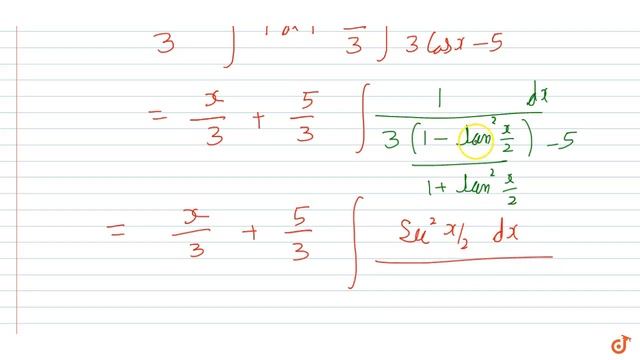 3 ∫ 3 ∫ 3 Cosx - 5
= x/3 + 5/3 ∫ 1 dx / (3 (1 - tan² x/2) / (1 + tan² x/2) - 5)
= x/3 + 5/3 ∫ Sec² x/2 dx
doubtnut